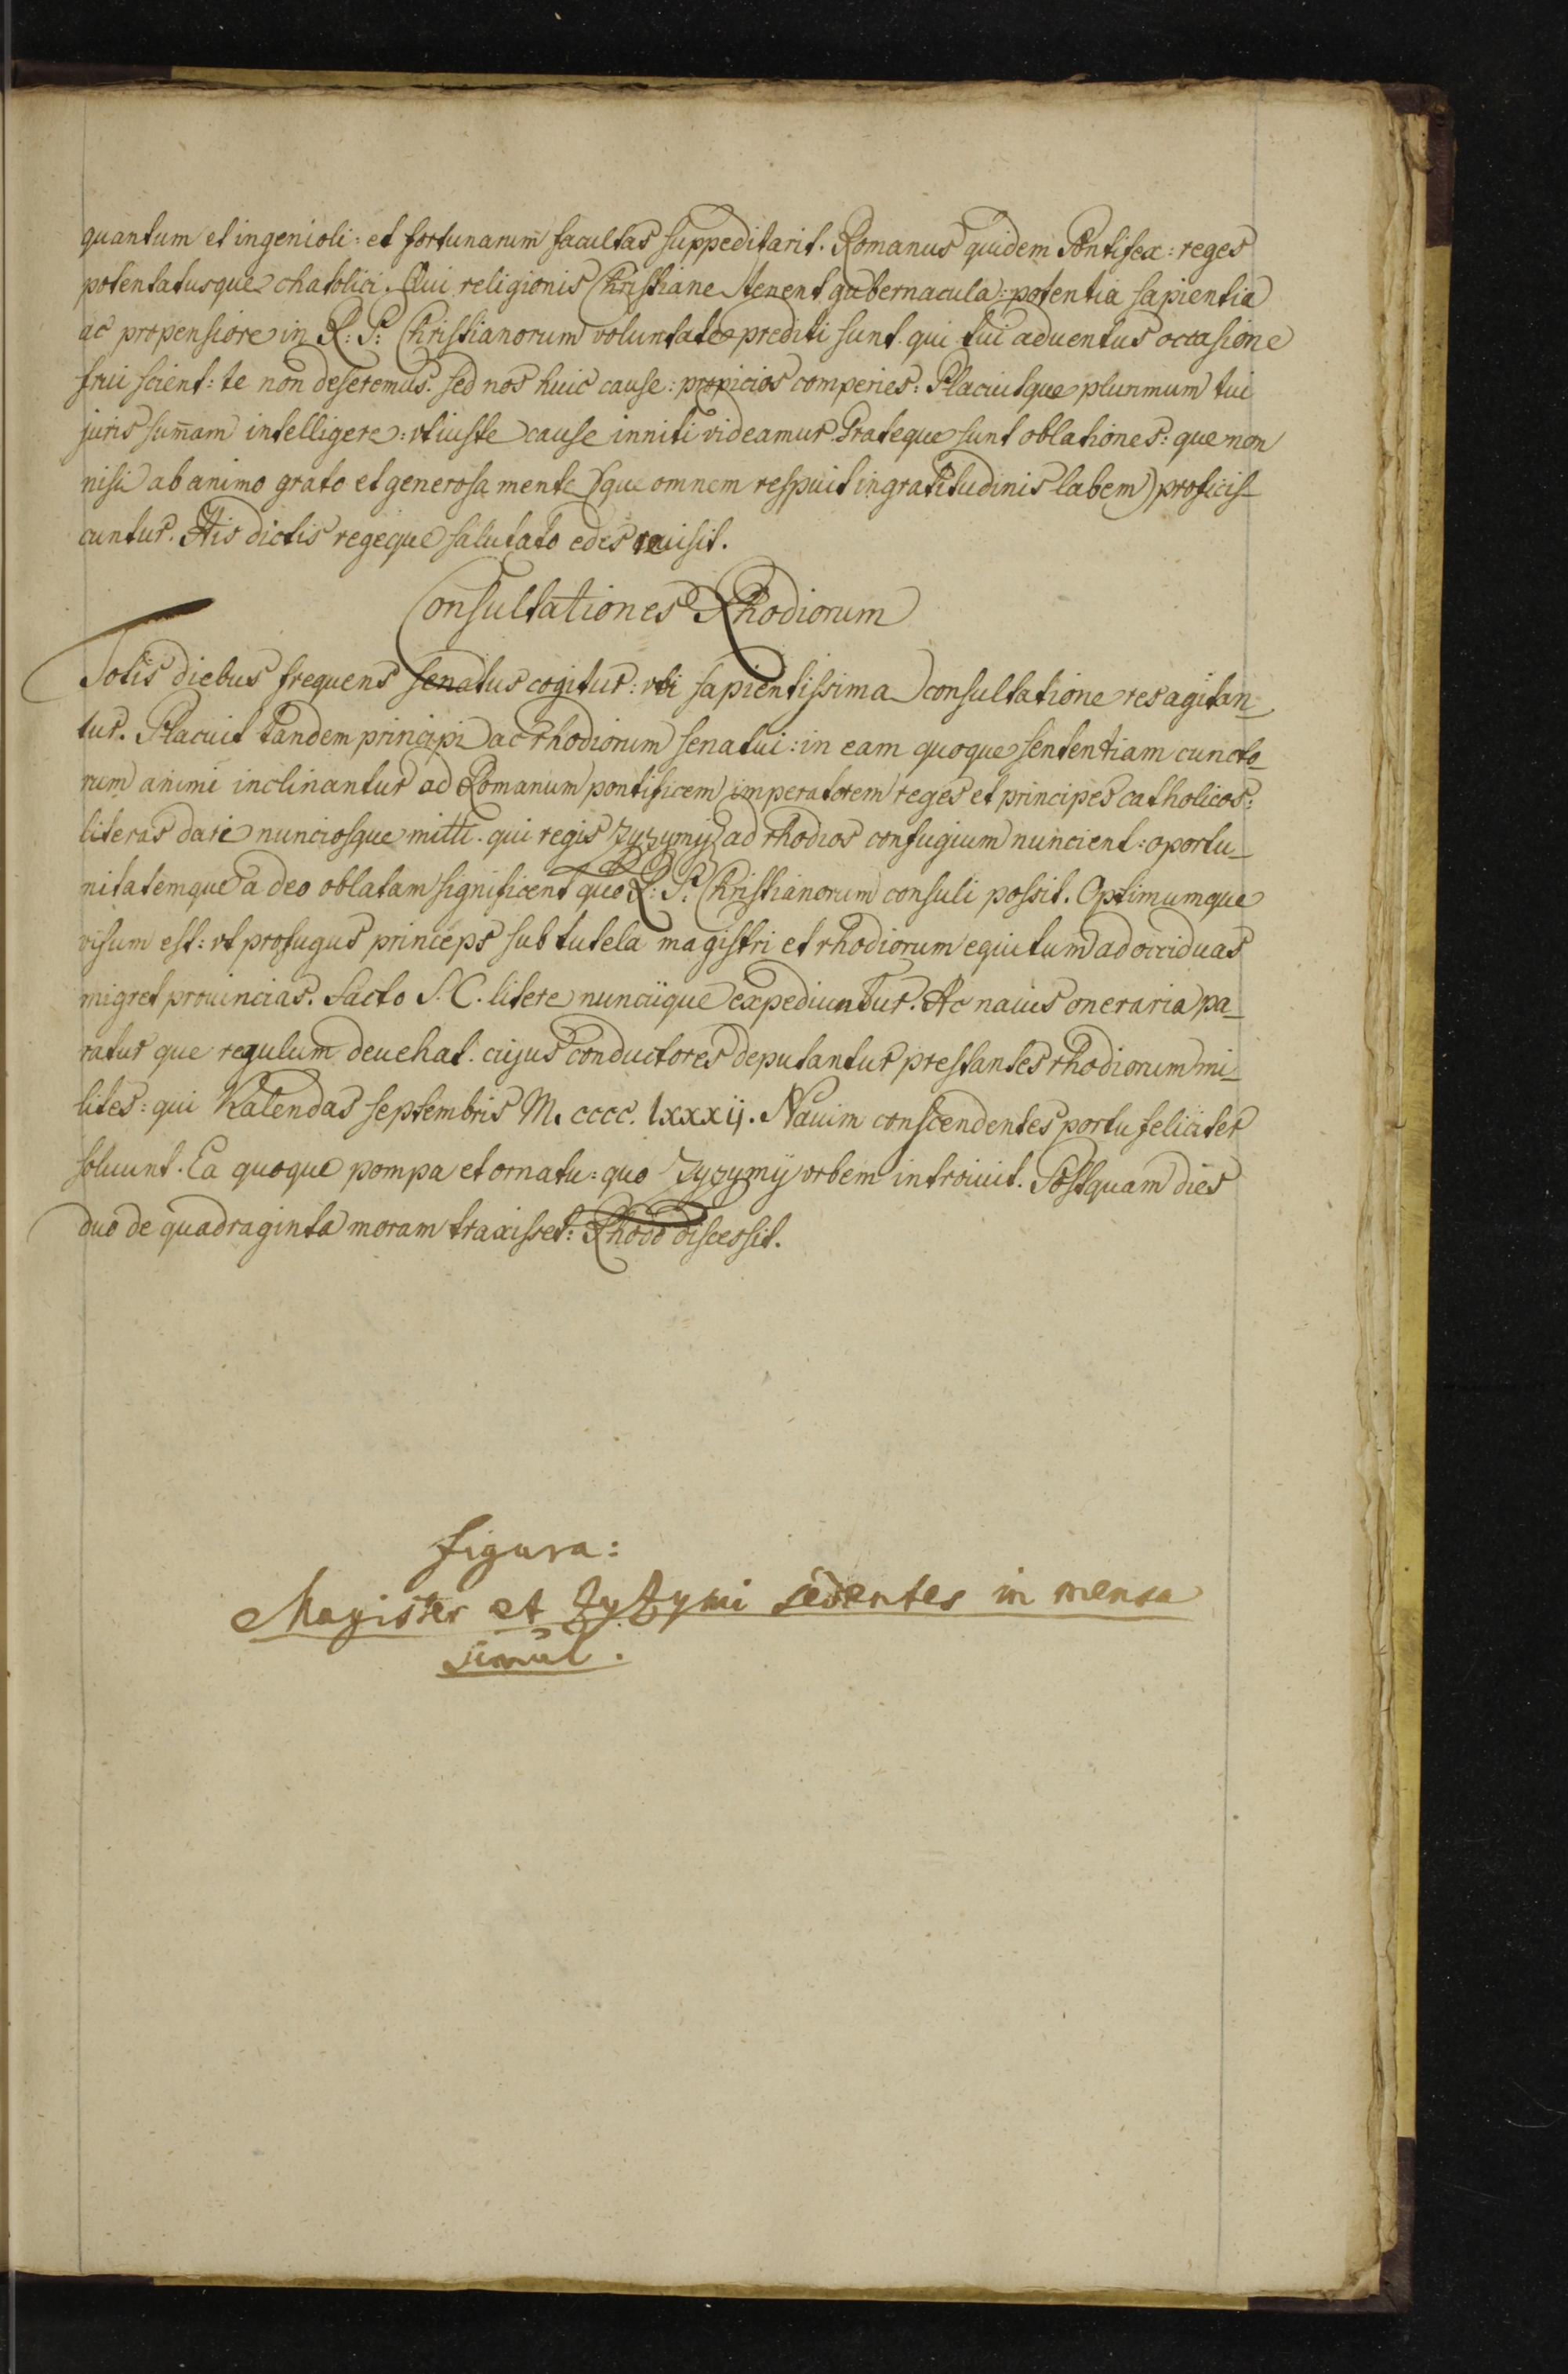 quantum et ingenioli: et fortunarum facultas suppeditarit. Romanus quidem Pontifex: reges
potentatusque chatolici Qui religionis Christiane tenent gubernacula: potentia sapientia
ac propensiore in R: P: Christianorum voluntate prediti sunt. qui tui aduentus occasione
frui scient: te non deseremus. sed nos huic cause: propicios comperies: Placuitque plurimum tui
juris sum̄am intelligere: vt iuste cause inniti videamur. Grateque sunt oblationes: que non
nisi ab animo grato et generosa mente (que omnem respuit ingratitudinis labem) proficis-
cuntur. His dictis regeque salutato edes reuisit.
Consultationes Rhodiorum
Totis diebus frequens senatus cogitur: vbi sapientissima consultatione res agitan-
tur. Placuit tandem principi ac rhodiorum senatui: in eam quoque sententiam cuncto-
rum animi inclinantur ad Romanum pontificem imperatorem reges et principes catholicos:
literas dari nunciosque mitti. qui regis zyzymij ad rhodios confugium nuncient: oportu-
nitatemque a deo oblatam significent quo R: P: Christianorum consuli possit. Optimumque
visum est: vt profugus princeps sub tutela magistri et rhodiorum equitum ad occiduas
migret prouincias. Facto S. C. litere nunciique expediuntur. Ac nauis oneraria pa-
ratur que regulum deuehat. cujus conductores deputantur prestantes rhodiorum mi-
lites: qui Kalendas septembris M. cccc. lxxxij. Nauim conscendentes portu feliciter
soluunt. Ea quoque pompa et ornatu: quo Zyzymij vrbem introiuit. Postquam dies
duo de quadraginta moram traxisset: Rhodo discessit.
figura:
Magister et Zyzymi sedentes in mensa
simul.